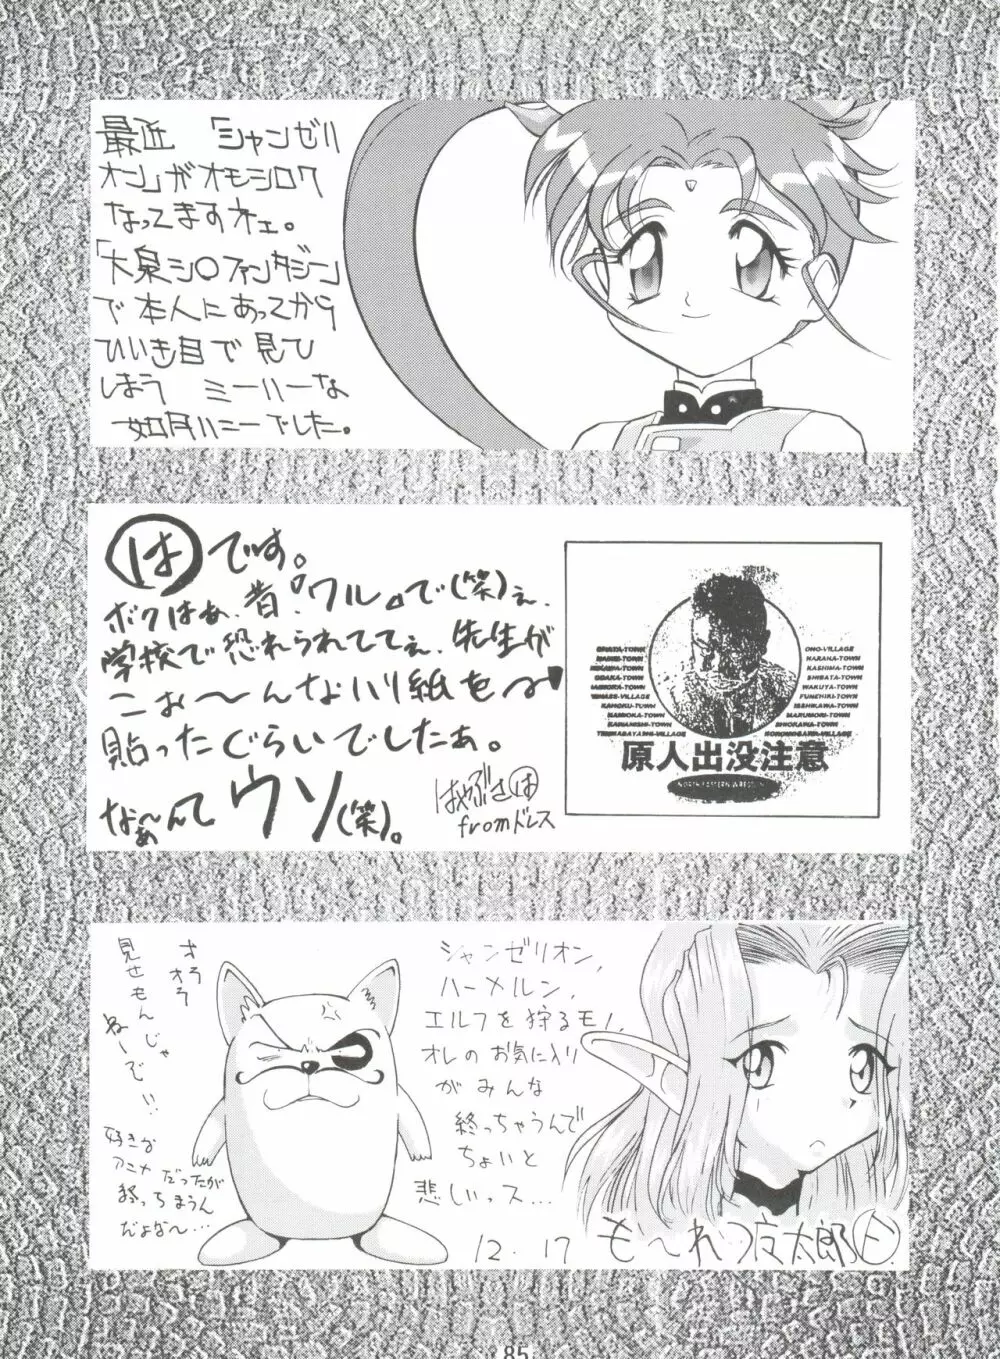 最近 「シャンゼリ
オン」がオモシロク
なってますネェ。
「大泉シ○ファンタジー」
で本人にあってから
ひいき目で見ひ
しまう ミーハーな
如月ハニーでした。
はです。
ボクはぁ、昔『ワル』で(笑)ぇ、
学校で恐れられててぇ、先生が
こぉ〜んなハリ紙を
貼ったぐらいでしたぁ。
なぁ〜んて ウソ(笑)。
はやぶさは
fromドレス
ONO-VILLAGE
NARAHA-TOWN
KASHIMA-TOWN
SHIBATA-TOWN
WAKUYA-TOWN
FUNEHIKI-TOWN
ISHIKAWA-TOWN
MARUMORI-TOWN
SHIOKAWA-TOWN
原人出没注意
オラ
オラ
見せもんじゃ
ねーでい!!
好きな
アニメだったが
終っちまうん
だよな〜…
シャンゼリオン、
ハーメルン、
エルフを狩るモノ、
オレのお気に入り
がみんな
終っちゃうんで
ちょいと
悲しいっス…
12.17
も〜れつ夜太郎
85